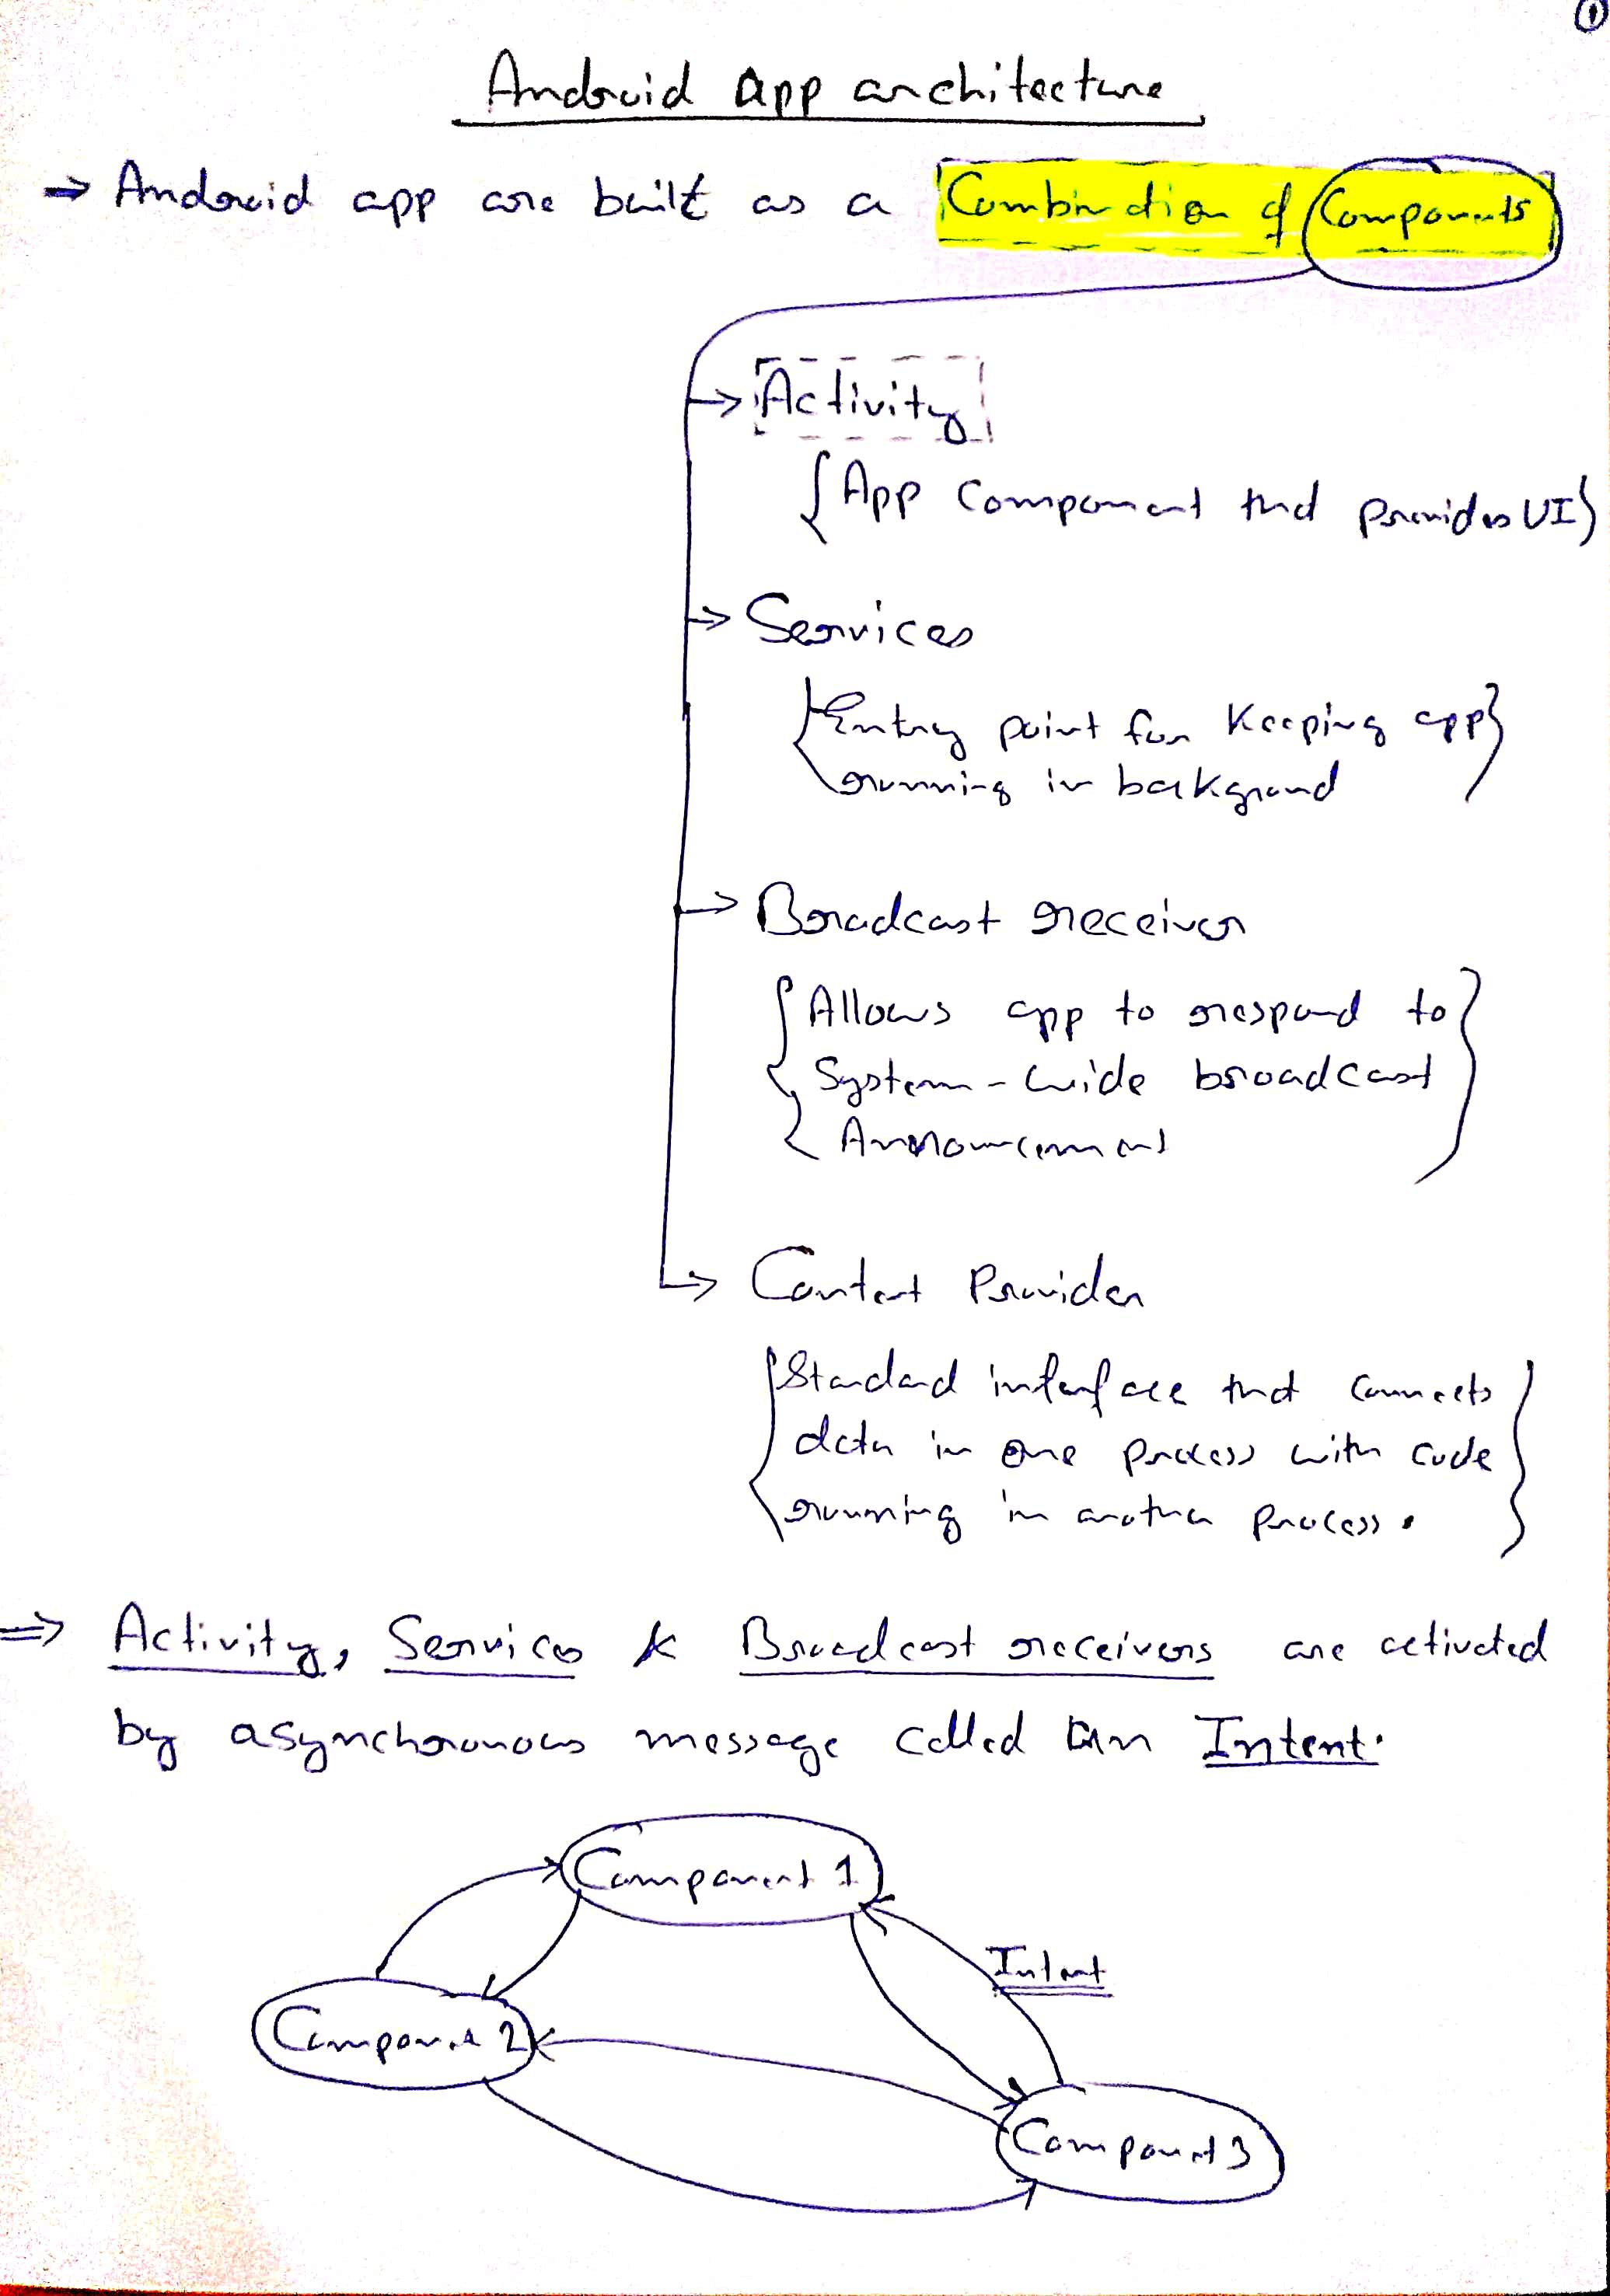 1
Android App architecture
→ Android app are built as a Combination of Components
→ Activity
{App Component that provides UI}
→ Services
{Entry point for Keeping app
running in background}
→ Broadcast receiver
{Allows app to respond to
System-wide broadcast
Announcement}
→ Content Provider
{Standard interface that connects
data in one process with code
running in another process.}
⇒ Activity, Services & Broadcast receivers are activated
by asynchronous message called an Intent.
Component 1
Intent
Component 2
Component 3